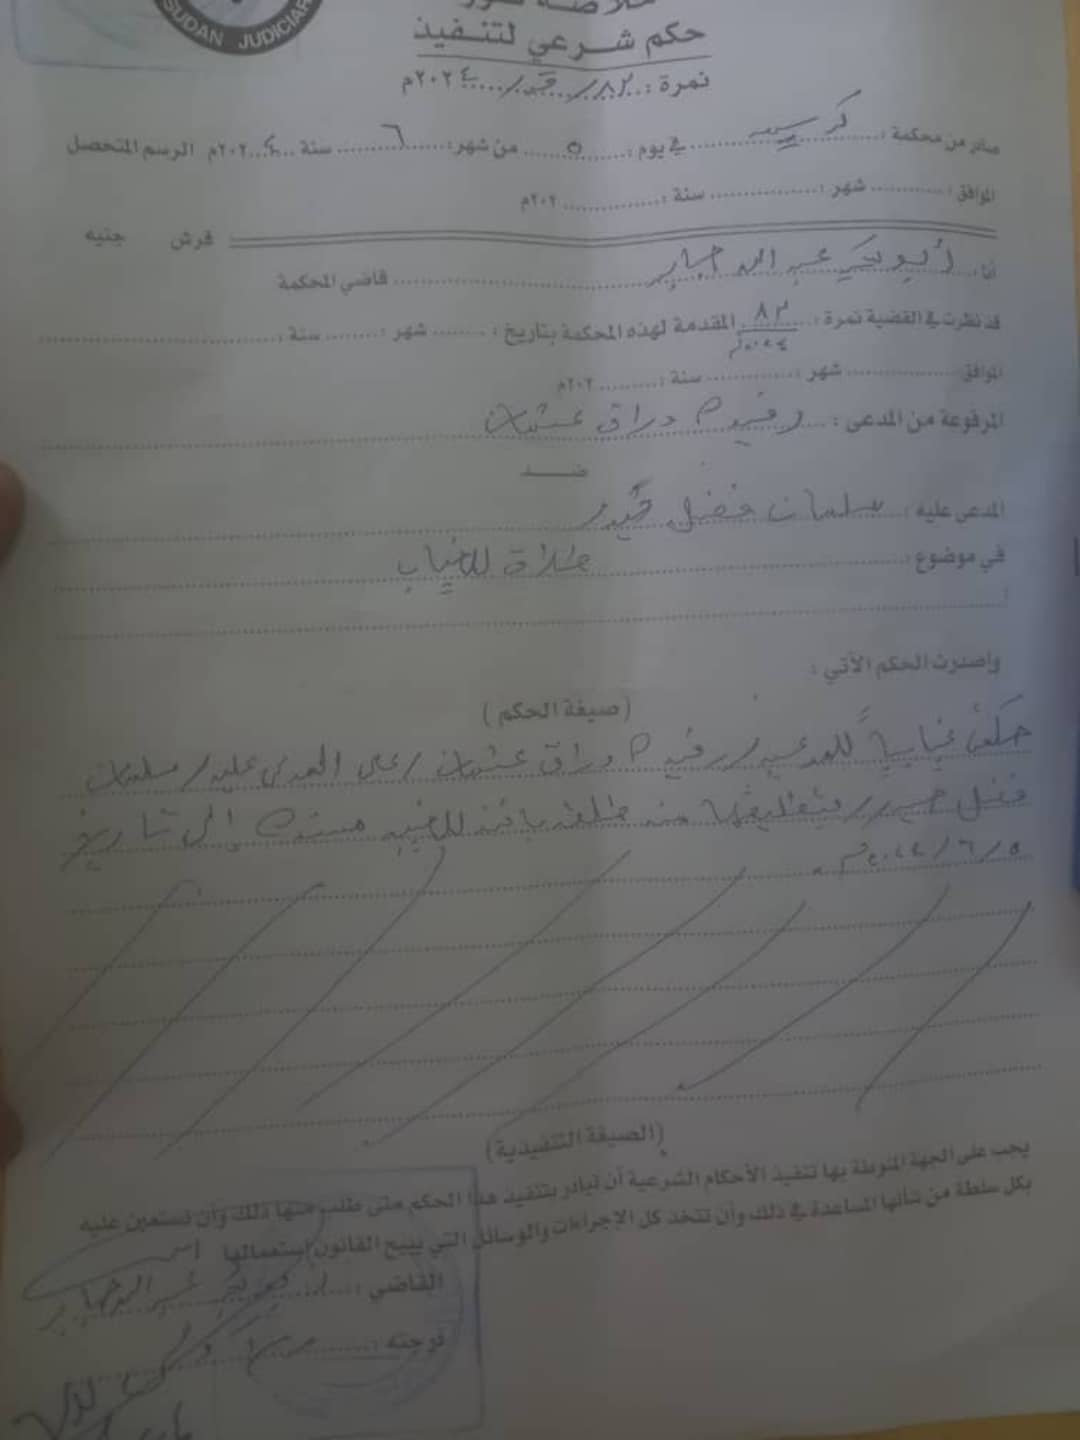 SUDAN JUDICIAR
حكم شرعي لتنفيذ
نمرة : ٨٢ / ق / ٢٠٢٤م
صادر من محكمة : ........ في يوم : ٥ من شهر : ٦ سنة ٢٠٢٤م الرسم المتحصل
الموافق : ........ شهر : ........ سنة : ........ ٢٠٢م
قرش جنيه
أنا : أبوبكر عبد الله جابر ........ قاضي المحكمة
قد نظرت في القضية نمرة : ٨٢ / ٢٠٢٤م المقدمة لهذه المحكمة بتاريخ : ........ شهر : ........ سنة : ........
الموافق ........ شهر : ........ سنة : ........ ٢٠٢م
المرفوعة من المدعى : ........ عثمان
ضد
المدعى عليه : سلمان فضل
في موضوع : طلاق للغياب
واصدرت الحكم الآتي :
(صيغة الحكم)
حكمت غيابياً للمدعيه / عثمان / على المدعى عليه / سلمان
فضل / بتطليقها منه طلقه بائنه للغيبه مستندة الى تاريخ
٥ / ٦ / ٢٠٢٤م.
(الصيغة التنفيذية)
يجب على الجهة المنوطة بها تنفيذ الأحكام الشرعية أن تبادر بتنفيذ هذا الحكم متى طلب منها ذلك وأن تستعين عليه
بكل سلطة من شأنها المساعدة في ذلك وأن تتخذ كل الإجراءات والوسائل التي يبيح القانون إستعمالها
القاضي : أبوبكر عبد الله جابر
درجته :